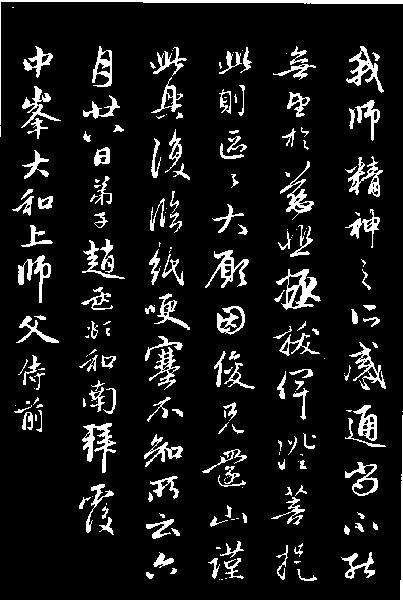 我師精神之所感通尚不能
無望於慈悲拯拔俾證菩提
此則區〻大願因俊兄還山謹
此具復臨紙哽塞不知所云六
月廿八日弟子趙孟頫和南拜覆
中峯大和上師父侍前